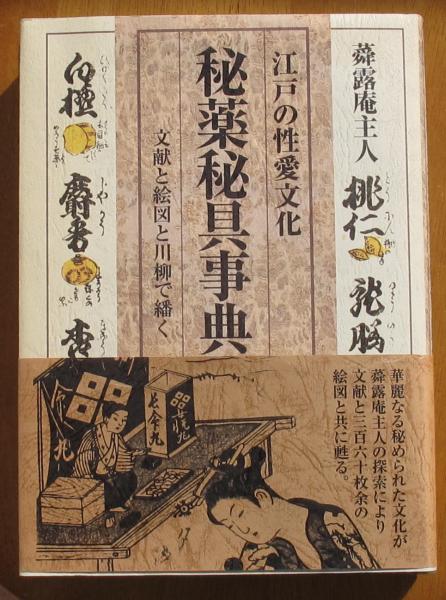 蕣露庵主人
江戸の性愛文化
秘薬秘具事典
文献と絵図と川柳で繙く
桃仁
龍脳
白檀
麝香
華麗なる秘められた文化が
蕣露庵主人の探索により
文献と三百六十枚余の
絵図と共に甦る。
長命丸
女悦丸
命丸